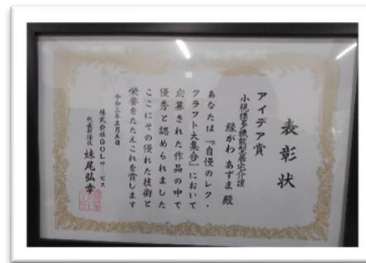 表彰状
アイデア賞
小規模多機能型居宅介護
縁がわ あずま 殿
あなたは『自慢のレク・
クラフト大集合』において
応募された作品の中で
優秀と認められました
ここにその優れた技術と
栄誉をたたえこれを賞します
株式会社QOLサービス
代表取締役 妹尾弘幸